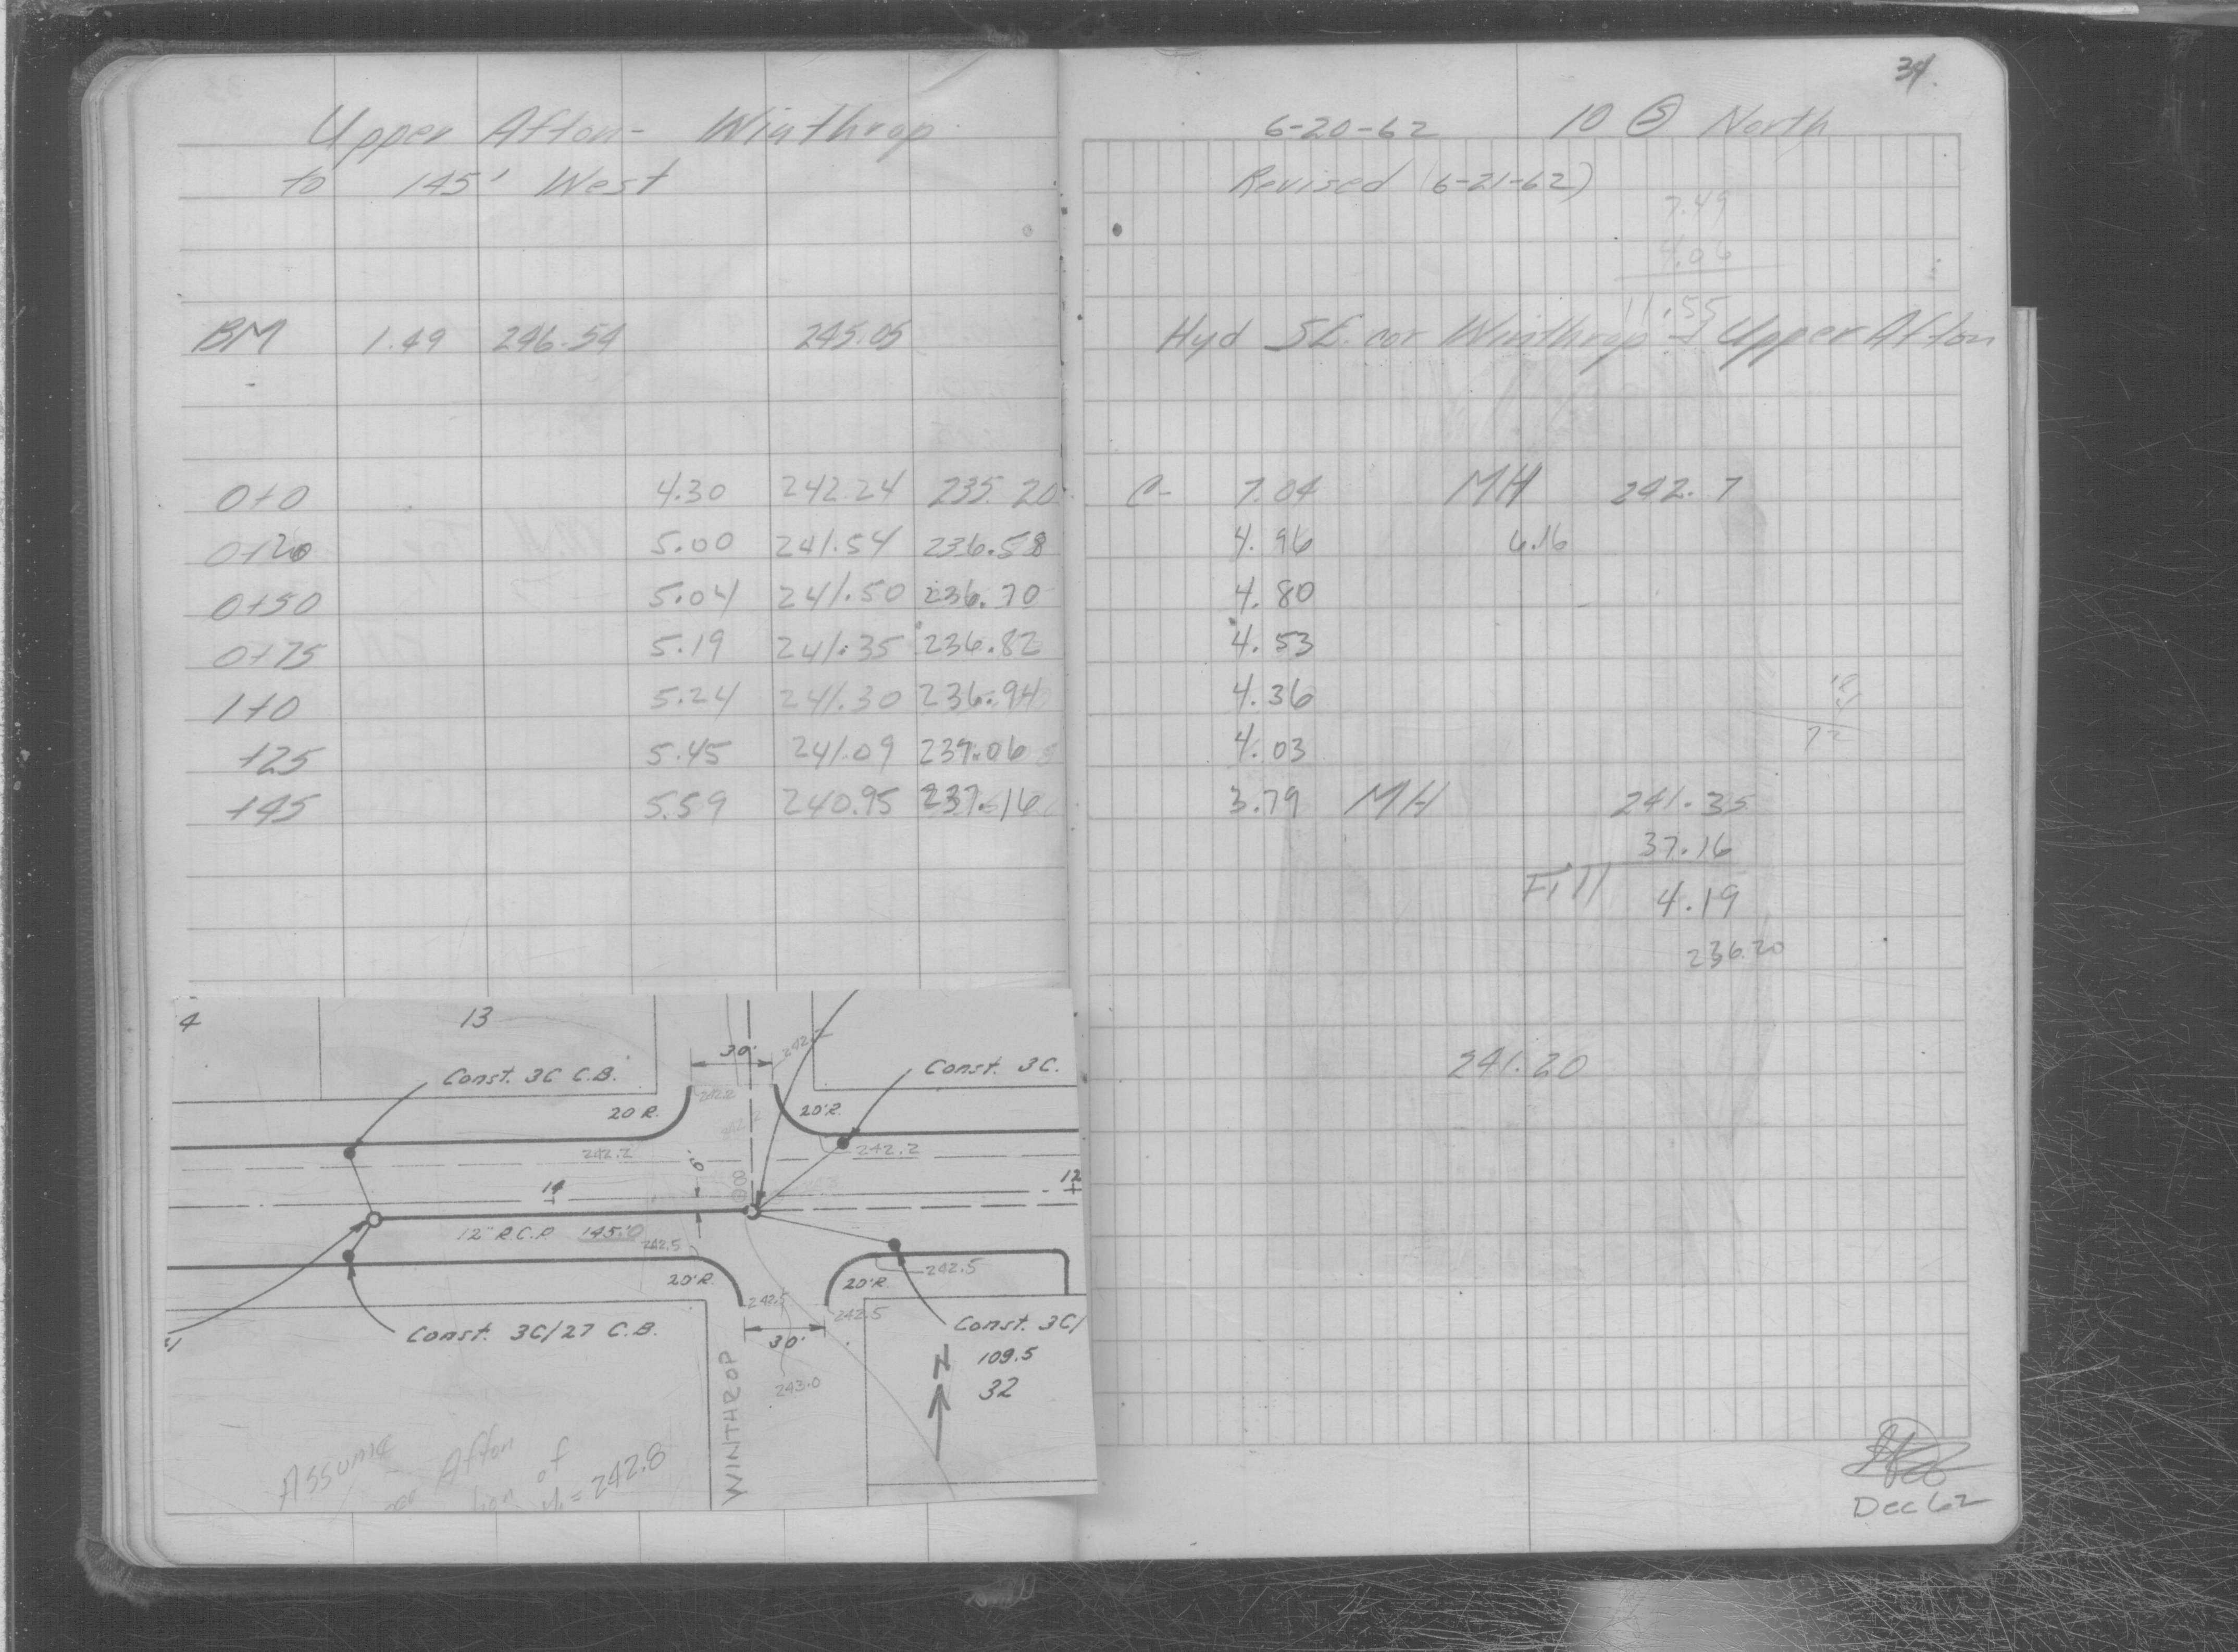 34.
Upper Afton- Winthrop
to 145' West
6-20-62 10 Ⓢ North
Revised (6-21-62)
7.49
4.06
11.55
BM 1.49 246.54 245.05 Hyd S.E. cor Winthrop + Upper Afton
0+0 4.30 242.24 235.20 C- 7.04 MH 242.7
0+20 5.00 241.54 236.58 4.96 6.16
0+50 5.04 241.50 236.70 4.80
0+75 5.19 241.35 236.82 4.53
1+0 5.24 241.30 236.94 4.36
+25 5.45 241.09 237.06 4.03
+45 5.59 240.95 237.16 3.79 MH 241.35
37.16
Fill 4.19
236.20
241.20
4 13
30'
242.2
Const. 3C C.B.
Const. 3C.
242.2
20 R.
20'R.
242.2
242.2
242.2
6'
14
12
12" R.C.P. 145.0
242.5
20'R.
20'R.
242.5
242.5
242.5
Const. 3C/27 C.B.
30'
Const. 3C/
N 109.5
32
243.0
WINTHROP
Assume
Afton
of
= 242.8
Dec 62